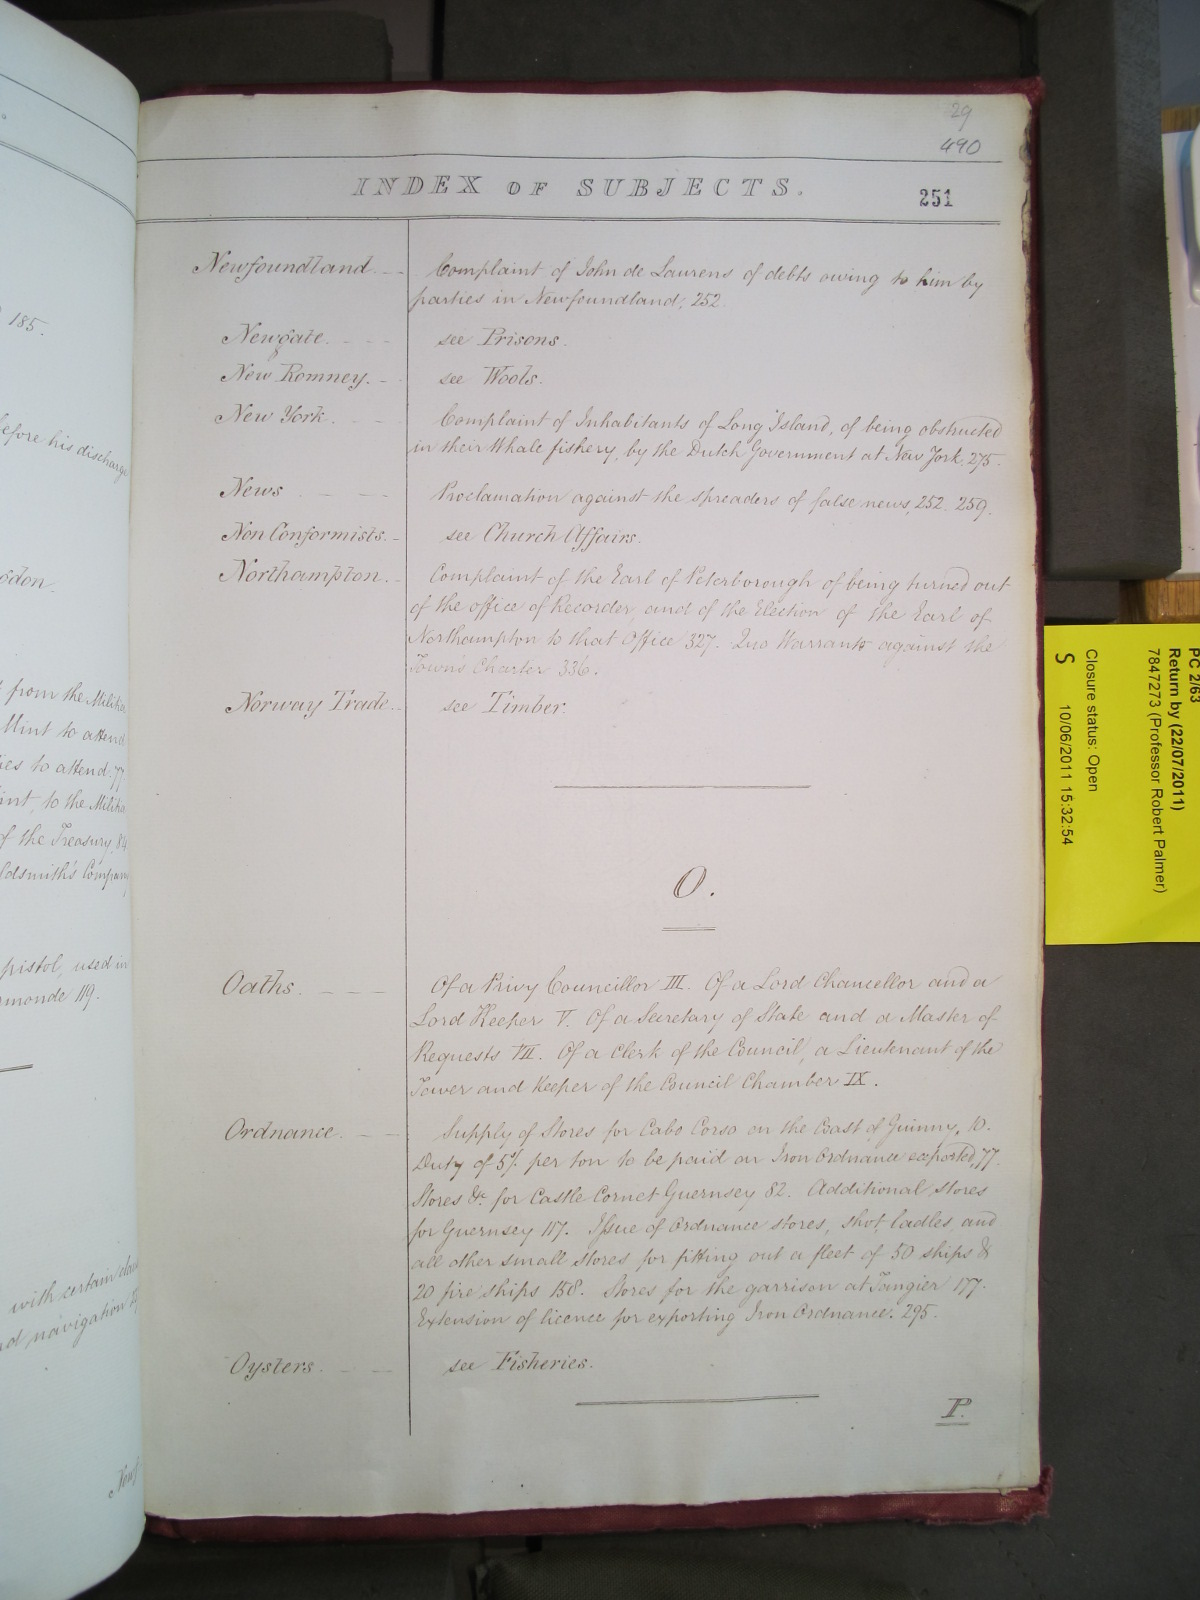 29
490
INDEX OF SUBJECTS.
251
Newfoundland. Complaint of John de Laurens of debts owing to him by
parties in Newfoundland, 252.
Newgate. see Prisons.
New Romney. see Wools.
New York. Complaint of Inhabitants of Long Island, of being obstructed
in their Whale fishery, by the Dutch Government at New York, 275.
News Proclamation against the spreaders of false news, 252. 259.
Non Conformists. see Church Affairs.
Northampton. Complaint of the Earl of Peterborough of being turned out
of the office of Recorder, and of the Election of the Earl of
Northampton to that Office 327. Quo Warranto against the
Town's Charter 336.
Norway Trade. see Timber.
O.
Oaths. Of a Privy Councillor III. Of a Lord Chancellor and a
Lord Keeper V. Of a Secretary of State and a Master of
Requests VII. Of a Clerk of the Council, a Lieutenant of the
Tower and Keeper of the Council Chamber IX.
Ordnance. Supply of Stores for Cabo Corso on the Coast of Guinny, 10.
Duty of 5/. per ton to be paid on Iron Ordnance exported, 77.
Stores &c. for Castle Cornet Guernsey 82. Additional stores
for Guernsey 117. Issue of Ordnance stores, shot, ladles, and
all other small stores for fitting out a fleet of 50 ships &
20 fire ships 158. Stores for the garrison at Tangier 177.
Extension of licence for exporting Iron Ordnance. 295.
Oysters. see Fisheries.
P.
185.
before his discharge
from the Militia
Mint to attend
to attend. 77
to the Militia
of the Treasury, 84
Goldsmith's Company
pistol, used in
119.
with certain
navigation
PC 2/63
Return by (22/07/2011)
7847273 (Professor Robert Palmer)
Closure status: Open
S 10/06/2011 15:32:54